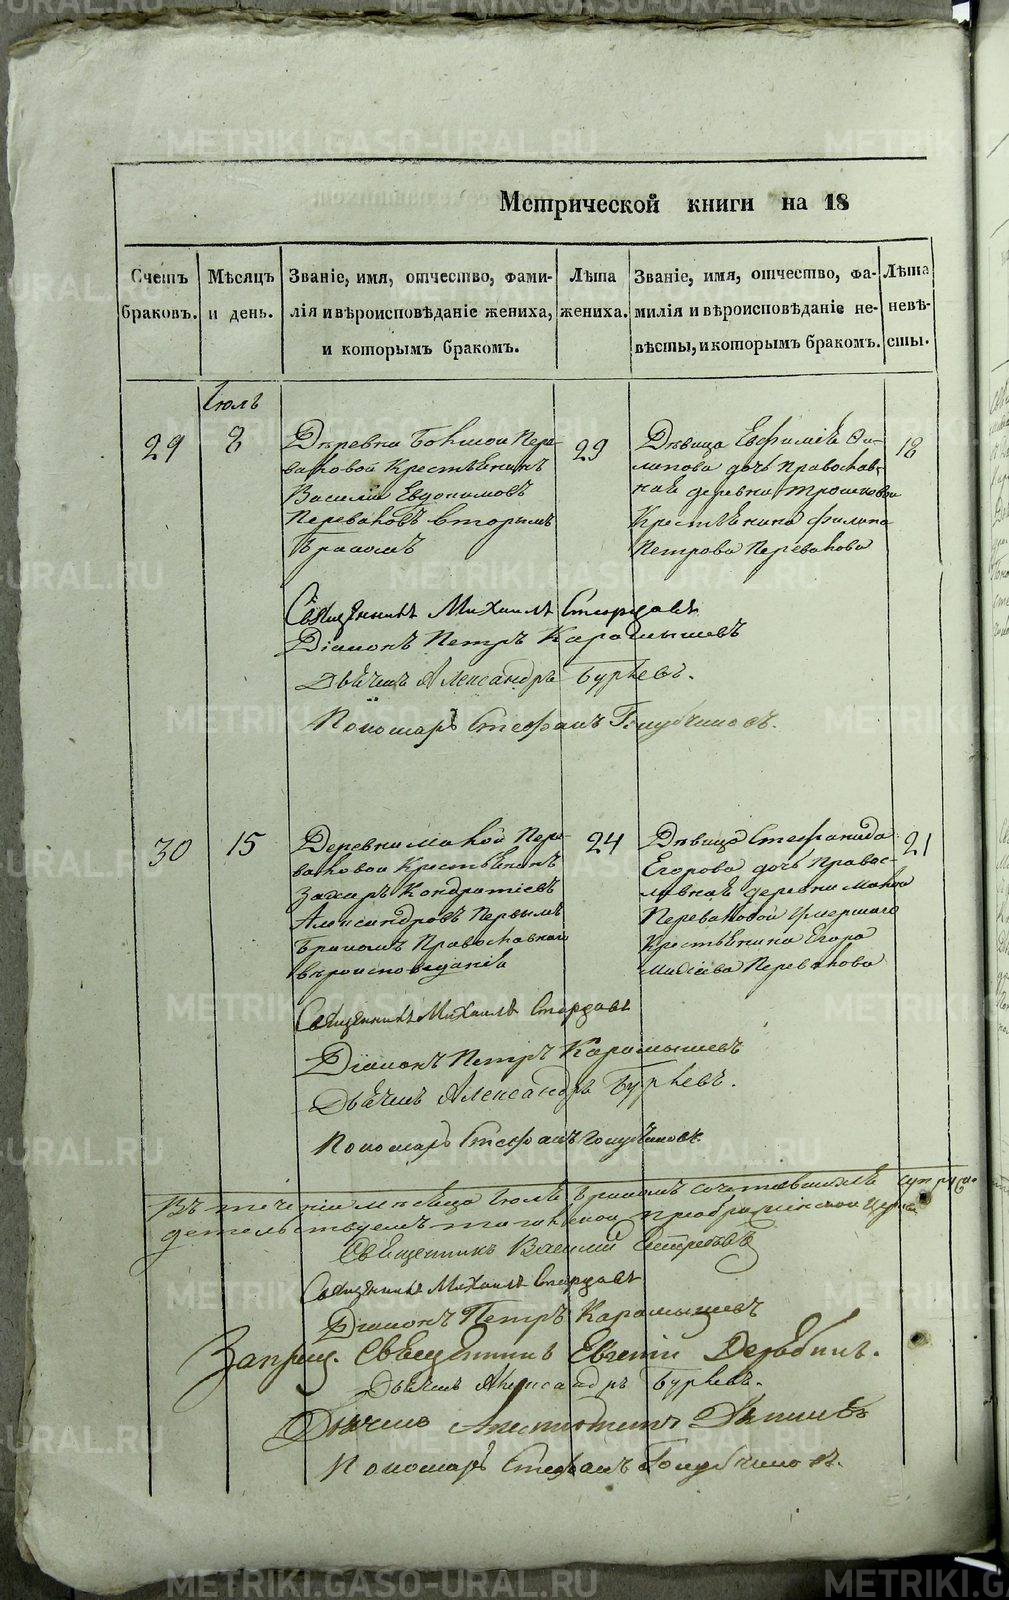 Метрической книги на 18
Счетъ браковъ.
Мѣсяцъ и день.
Званіе, имя, отчество, фамилія и вѣроисповѣданіе жениха, и которымъ бракомъ.
Лѣта жениха.
Званіе, имя, отчество, фамилія и вѣроисповѣданіе невѣсты, и которымъ бракомъ.
Лѣта невѣсты.
Іюль
29
8
Деревни Большой Пере-
валовой Крестьянинъ
Василій Евдокимовъ
Переваловъ вторымъ
бракомъ
29
Дѣвица Евфимія Фи-
липова дочь православ-
ная деревни Трошковой
Крестьянина Филипа
Петрова Перевалова
18
Священникъ Михаилъ
Діаконъ Петръ Карамышевъ
Дьячекъ Александръ Бурцевъ.
Пономарь Стефанъ
30
15
Деревни малой Пере-
валовой Крестьянинъ
Захаръ Кондратіевъ
Александровъ Первымъ
бракомъ Православнаго
вѣроисповѣданія
24
Дѣвица Стефанида
Егорова дочь правос-
лавная деревни малой
Переваловой умершаго
Крестьянина Егора
Перевалова
21
Священникъ Михаилъ
Діаконъ Петръ Карамышевъ
Дьячекъ Александръ Бурцевъ.
Пономарь Стефанъ
Въ теченіи мѣсяца Іюля бракомъ сочетавшихся
Священникъ Василій
Священникъ Михаилъ
Діаконъ Петръ Карамышевъ
Запрещ. Священникъ Евгеній Дерябинъ.
Дьячекъ Александръ Бурцевъ.
Дьячекъ
Пономарь Стефанъ
METRIKI.GASO-URAL.RU